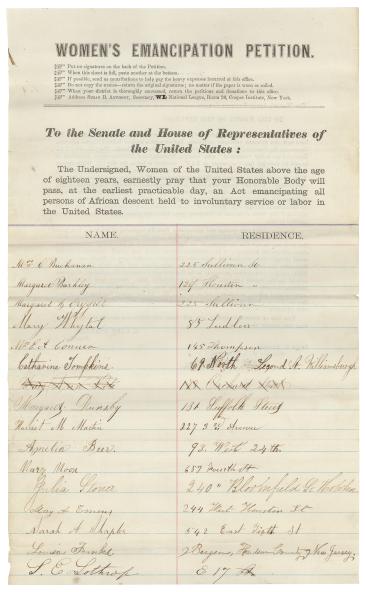 WOMEN'S EMANCIPATION PETITION.
Put no signatures on the back of the Petition.
When this sheet is full, paste another at the bottom.
If possible, send as contributions to help pay the heavy expenses incurred at this office.
Do not copy the names—return the original signatures; no matter if the paper is worn or soiled.
When your district is thoroughly canvassed, return the petitions and donations to this office.
Address SUSAN B. ANTHONY, Secretary, W. L. National League, Room 20, Cooper Institute, New York.
To the Senate and House of Representatives of
the United States:
The Undersigned, Women of the United States above the age
of eighteen years, earnestly pray that your Honorable Body will
pass, at the earliest practicable day, an Act emancipating all
persons of African descent held to involuntary service or labor
in the United States.
NAME. RESIDENCE.
Buchanan 225 Sullivan St
Margaret Barkley 129 Houston "
Margaret 225 Sullivan
Mary Whytal 85 Ludlow
145 Thompson
Catharine Tompkins 69 North Second St. Williamsburgh
Margaret Dunsby 131 Suffolk Street
Harriet M Martin 227
Amelia Beer. 93. West 24th.
Mary Moor 657 Fourth St
Julia 240 Bloomfield St Hoboken
244 West Houston St
Sarah A 542 East Fifth St
Louisa Bergen, Hudson County, New Jersey,
S. E. Lothrop E 17 St